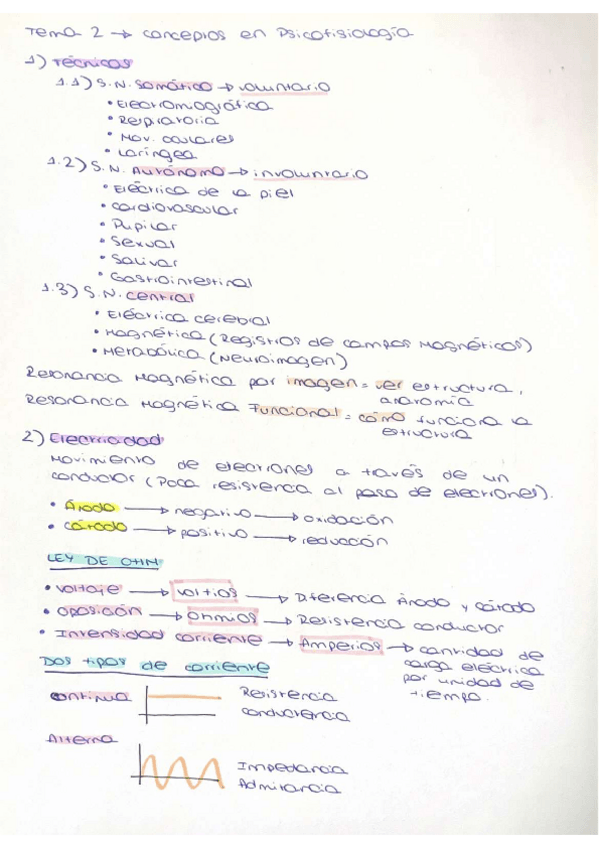 Tema 2 → conceptos en Psicofisiología
1) Técnicas
1.1) S.N. Somático → voluntario
• Electromiográfica
• Respiratoria
• Mov. oculares
• Laríngea
1.2) S.N. Autónomo → involuntario
• Eléctrica de la piel
• Cardiovascular
• Pupilar
• Sexual
• Salivar
• Gastrointestinal
1.3) S.N. Central
• Eléctrica cerebral
• Magnética (Registros de campos magnéticos)
• Metabólica (Neuroimagen)
Resonancia Magnética por imagen = ver estructura,
anatomía
Resonancia Magnética Funcional = cómo funciona la
estructura
2) Electricidad
Movimiento de electrones a través de un
conductor (Poca resistencia al paso de electrones).
• Ánodo → negativo → oxidación
• Cátodo → positivo → reducción
LEY DE OHN
• Voltaje → voltios → Diferencia Ánodo y cátodo
• Oposición → ohmios → Resistencia conductor
• Intensidad corriente → Amperios → cantidad de
carga eléctrica
por unidad de
tiempo.
Dos tipos de corriente
Continua
Resistencia
conductancia
Alterna
Impedancia
Admitancia